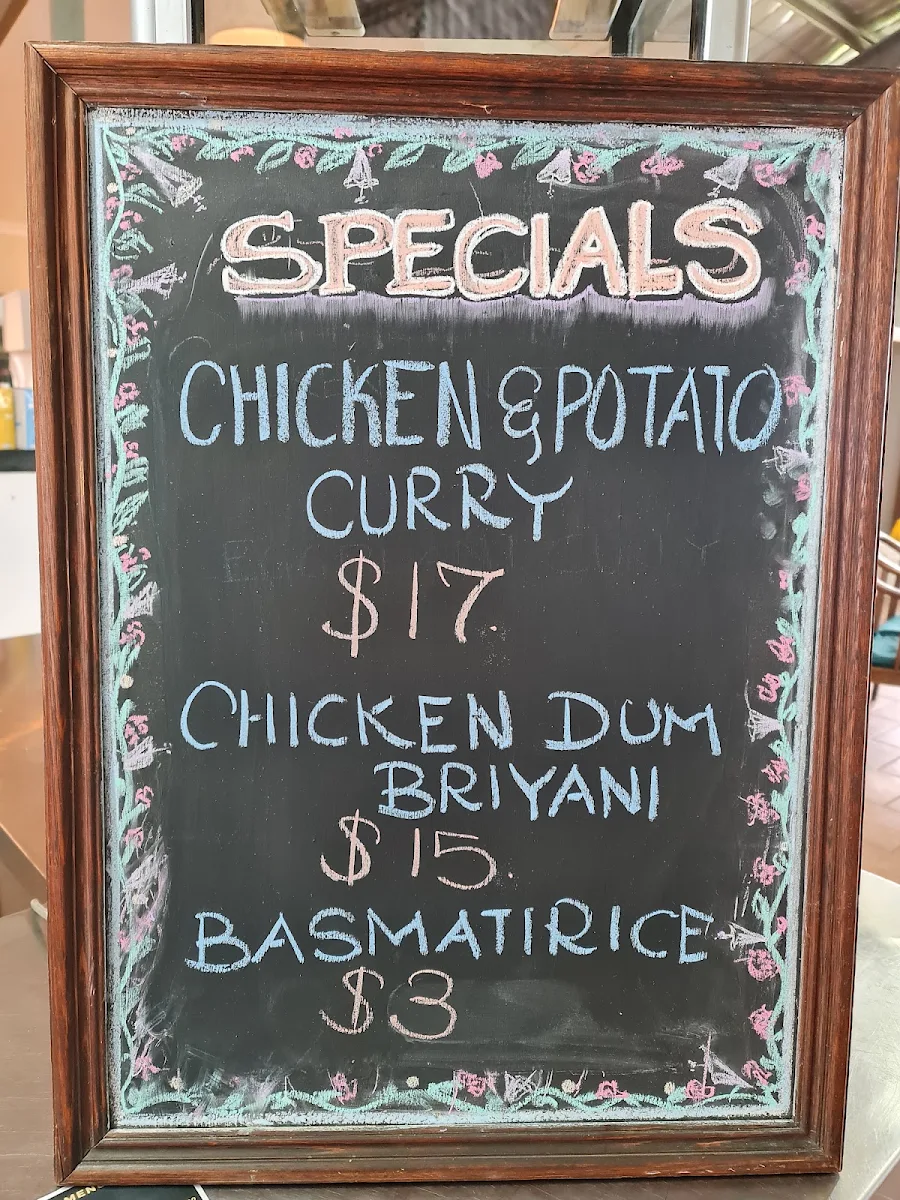 SPECIALS
CHICKEN & POTATO
CURRY
$17.
CHICKEN DUM
BRIYANI
$15.
BASMATI RICE
$3
MEN